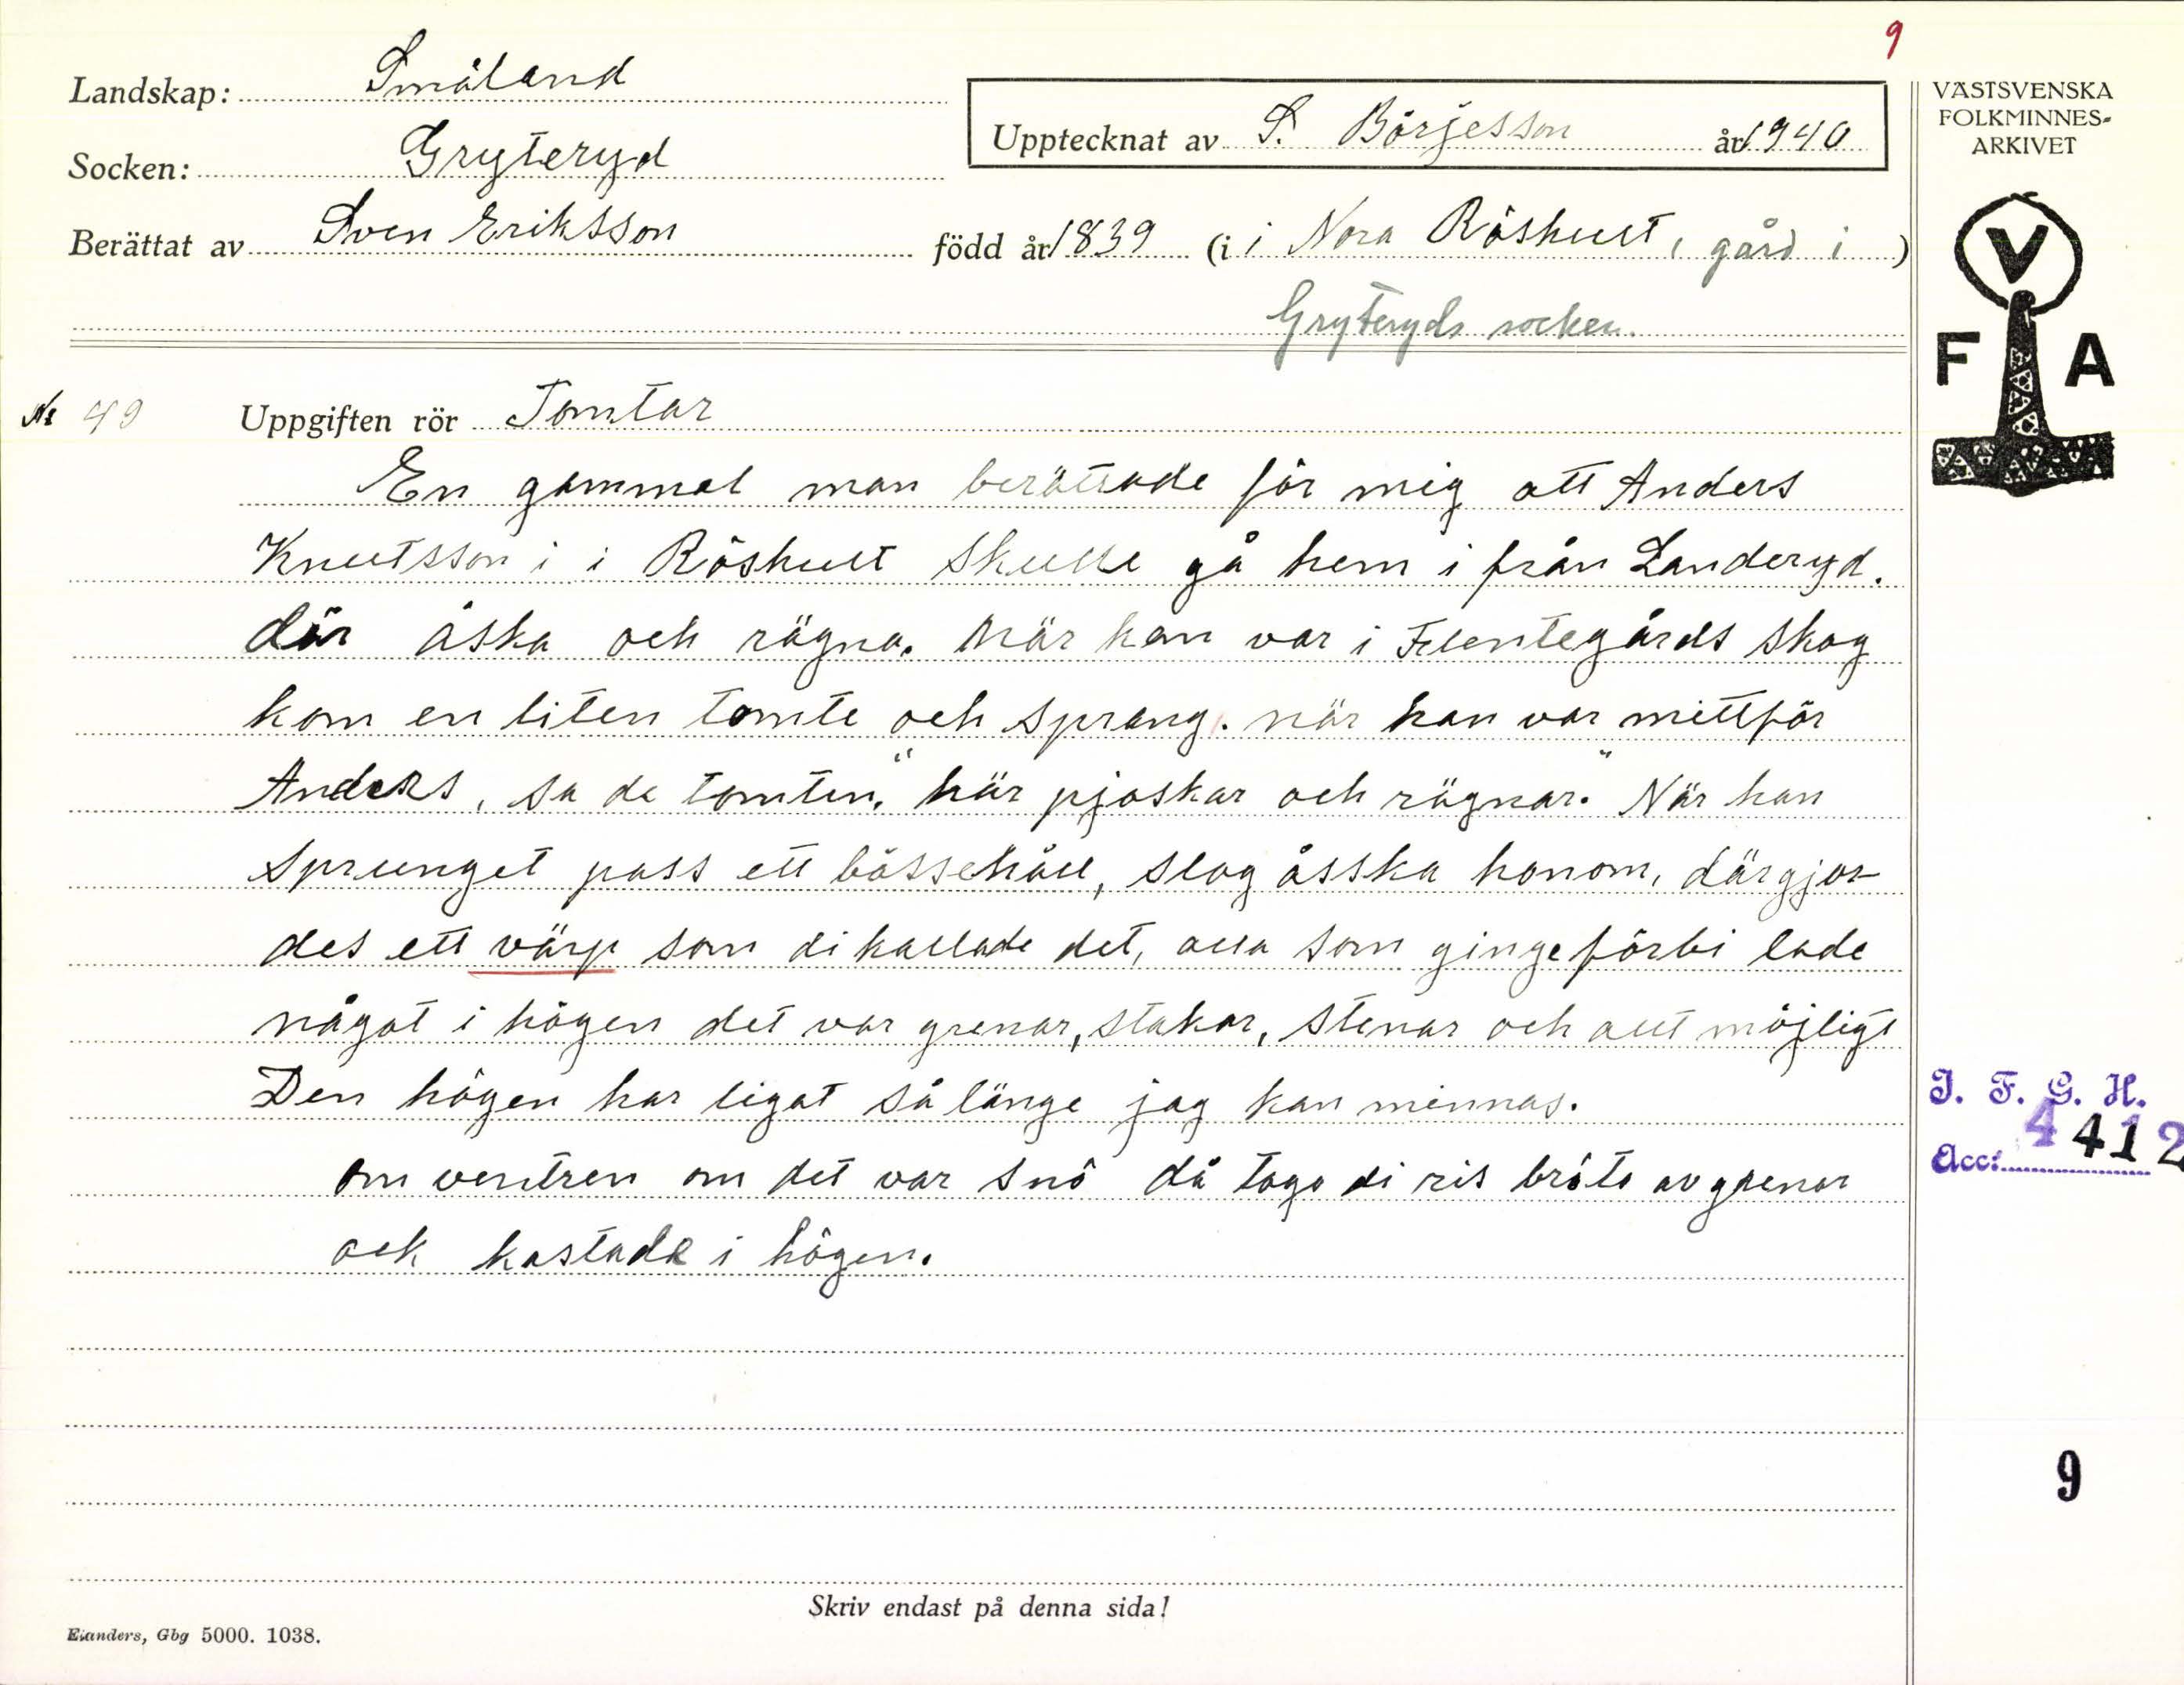 9
Landskap: Småland
Socken: Gryteryd
Berättat av Sven Eriksson född år 1839 (i i Nora Röshult, gård i )
Gryteryds socken.
Upptecknat av S. Börjesson år 1940
VÄSTSVENSKA
FOLKMINNES-
ARKIVET
V
F A
№ 49 Uppgiften rör Tomtar
En gammal man berättade för mig att Anders
Knutsson i i Röshult skulle gå hem i från Landeryd.
där åska och rägna. När han var i Flentegårds skog
kom en liten tomte och sprang. när han var mittför
Anders, sa de tomten, "här pjaskar och rägnar." När han
sprunget pass ett bössehåll, slog åsska honom, där gjor-
des ett värp som di kallade det, alla som ginge förbi lade
något i högen det var grenar, stakar, stenar och allt möjligt
Den högen har ligat så länge jag kan minnas.
om ventren om det var snö då togo di ris bröto av grenar
ock kastade i högen.
I. F. G. H.
Acc: 4412
9
Skriv endast på denna sida!
Elanders, Gbg 5000. 1038.